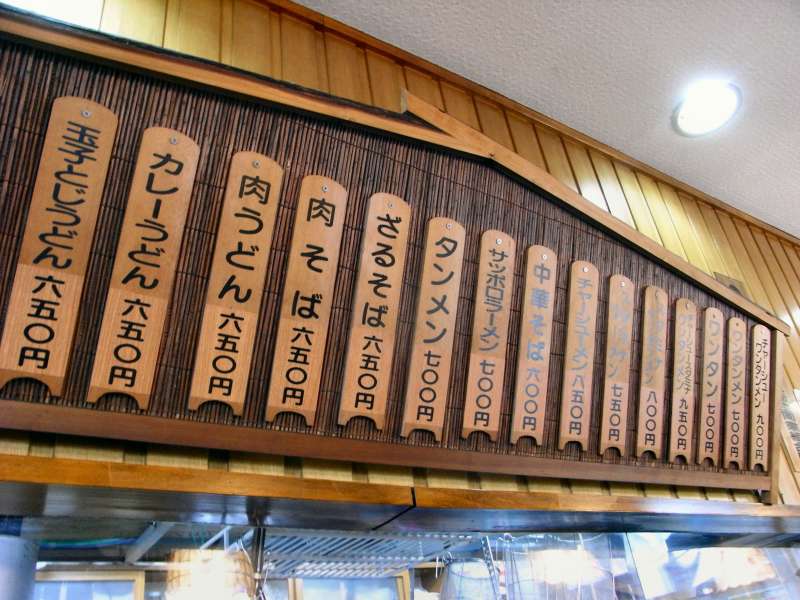 玉子とじうどん 六五〇円
カレーうどん 六五〇円
肉うどん 六五〇円
肉そば 六五〇円
ざるそば 六五〇円
タンメン 七〇〇円
サッポロラーメン 七〇〇円
中華そば 六〇〇円
チャーシューメン 八五〇円
七五〇円
八〇〇円
九五〇円
ワンタン 七〇〇円
ワンタンメン 七〇〇円
チャーシュー
ワンタンメン 九〇〇円